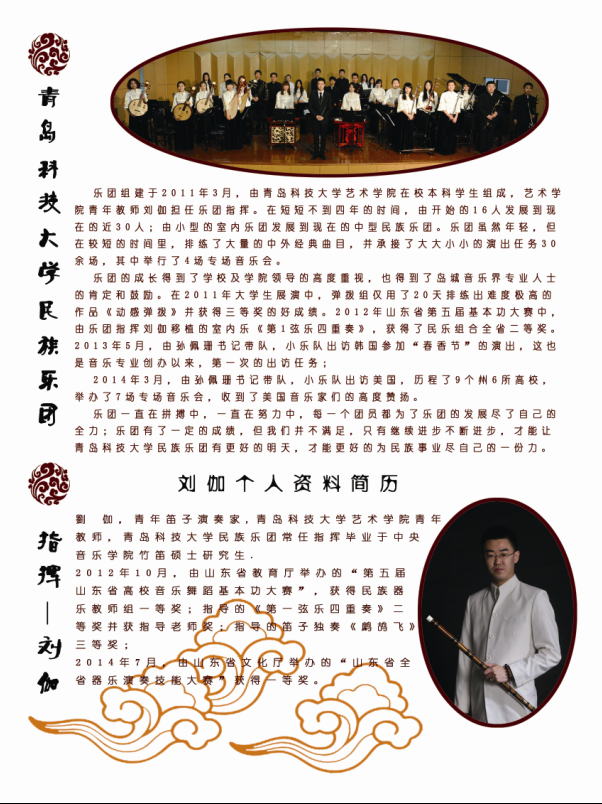 青岛科技大学民族乐团
乐团组建于2011年3月，由青岛科技大学艺术学院在校本科学生组成，艺术学
院青年教师刘伽担任乐团指挥。在短短不到四年的时间，由开始的16人发展到现
在的近30人；由小型的室内乐团发展到现在的中型民族乐团。乐团虽然年轻，但
在较短的时间里，排练了大量的中外经典曲目，并承接了大大小小的演出任务30
余场，其中举行了4场专场音乐会。
乐团的成长得到了学校及学院领导的高度重视，也得到了岛城音乐界专业人士
的肯定和鼓励。在2011年大学生展演中，弹拨组仅用了20天排练出难度极高的
作品《动感弹拨》并获得三等奖的好成绩。2012年山东省第五届基本功大赛中，
由乐团指挥刘伽移植的室内乐《第1弦乐四重奏》，获得了民乐组合全省二等奖。
2013年5月，由孙佩珊书记带队，小乐队出访韩国参加“春香节”的演出，这也
是音乐专业创办以来，第一次的出访任务；
2014年3月，由孙佩珊书记带队，小乐队出访美国，历程了9个州6所高校，
举办了7场专场音乐会，收到了美国音乐家们的高度赞扬。
乐团一直在拼搏中，一直在努力中，每一个团员都为了乐团的发展尽了自己的
全力；乐团有了一定的成绩，但我们并不满足，只有继续进步不断进步，才能让
青岛科技大学民族乐团有更好的明天，才能更好的为民族事业尽自己的一份力。
指挥—刘伽
刘伽个人资料简历
劉 伽，青年笛子演奏家，青岛科技大学艺术学院青年
教师，青岛科技大学民族乐团常任指挥毕业于中央
音乐学院竹笛硕士研究生.
2012年10月，由山东省教育厅举办的“第五届
山东省高校音乐舞蹈基本功大赛”，获得民族器
乐教师组一等奖；指导的《第一弦乐四重奏》二
等奖并获指导老师奖；指导的笛子独奏《鹧鸪飞》
三等奖；
2014年7月，由山东省文化厅举办的“山东省全
省器乐演奏技能大赛”获得一等奖。